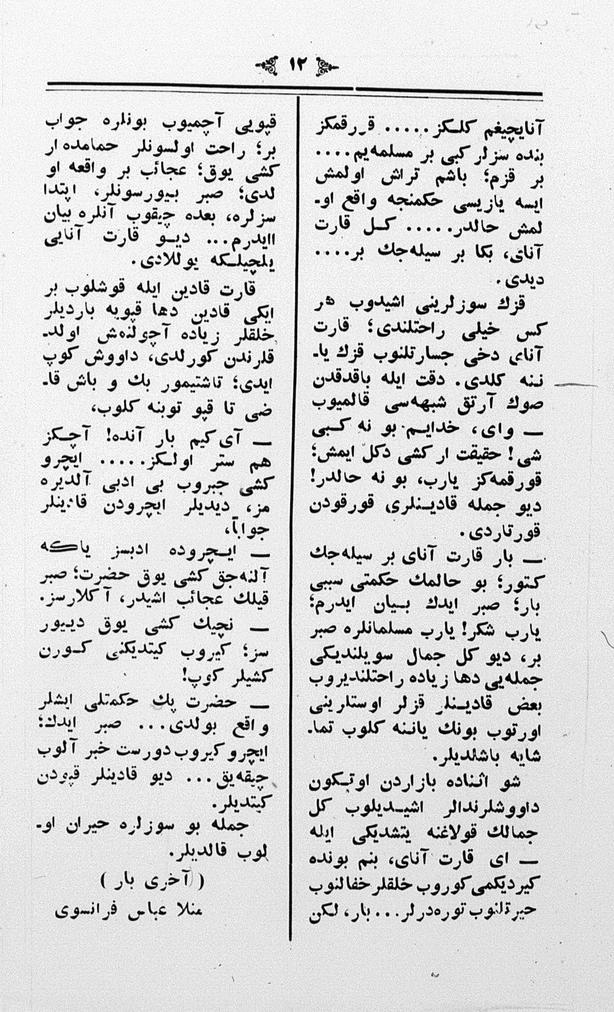 ١٢
آنایچیغم كلـكز ..... قورقمكز
بنده سزلر كبی بر مسلمه‌یم....
بر قزم؛ باشم تراش اولمش
ایسه یازیسی حكمنجه واقع او-
لمش حالدر..... كـل قارت
آنای، بكا بر سیله‌جك بر....
دیدی.
قزك سوزلرینی اشیدوب هر
كس خیلی راحتلندی؛ قارت
آنای دخی جسارتلنوب قزك یا-
ننه كلدی. دقت ایله باقدقدن
صوك آرتق شبهه‌سی قالمیوب
— وای، خدایـم بو نه كـبی
شی! حقیقت ار كشی دكل ایمش؛
قورقمه‌كز یارب، بو نه حالدر!
دیو جمله قادیـنلری قورقودن
قورتاردی.
— بار قارت آنای بر سیله‌جك
كتور؛ بو حالمك حكمتی سببی
بار؛ صبر ایدك بـیان ایدرم؛
یارب شكر! یارب مسلمانلره صبر
بر، دیو كل جمال سویلندیـكی
جمله‌یی دها زیاده راحتلندیروب
بعض قادیـنلر قزلر اوستلرینی
اورتوب بونك یانـنه كلوب تما-
شایه باشلدیلر.
شو اثـناده بازاردن اوتـكون
داووشلرندالر اشیـدیلوب كل
جمالك قولاغنه یتشدیكی ایله
— ای قارت آنای، بنم بونده
كیردیكمی كوروب خلقلر خفالنوب
حیرتلنوب توره‌درلر... بار، لـكن
قپویی آچمیوب بونلره جواب
بر؛ راحت اولسونلر حمامده ار
كشی یوق؛ عجائب بر واقعه او
لدی؛ صبر بیورسونلر، اپتدا
سزلره، بعده چیقوب آنلره بیان
ایدرم... دیـو قارت آنایی
یلچیلـكه یوللادی.
قارت قادین ایله قوشلوب بر
ایكی قادین دها قپویه باردیلر
خلقلر زیاده آچولنمش اولد-
قلرندن كورلدی، داووش كوپ
ایدی؛ تاشتیمور بك و باش قا-
ضی تا قپو توبنه كلوب،
— آی كیم بار آنده! آچـكز
هم ستر اولـكز..... ایچرو
كشی جبروب بی ادبی آلدیره
مز، دیدیلر ایچرودن قادینلر
جواباً،
— ایـچروده ادبسز یاكه
آلنه‌جق كشی یوق حضرت؛ صبر
قیلك عجائب اشیدر، آكلارسز.
— نچیك كشی یوق دیـیور
سز؛ كیروب كیتدیكنی كـورن
كشیلر كوپ!
— حضرت پك حكمتلی ایشلر
واقع بولدی... صبر ایدك؛
ایچرو كیروب دورست خبر آلوب
چیقه‌یق... دیو قادینلر قپودن
كیتدیلر.
جمله بو سوزلره حیران او-
لوب قالدیلر.
( آخری بار )
منلا عباس فرانسوی